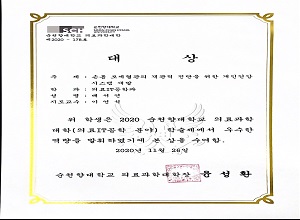 순천향대학교 의료과학대학
제2020 - 178호
대 상
주 제 : 손톱 모세혈관의 객관적 진단을 위한 개인진단
시스템 개발
학 과 : 의료IT공학과
성 명 :
지도교수 :
위 학생은 2020 순천향대학교 의료과학
대학(의료IT공학 분야) 학술제에서 우수한
역량을 발휘하였기에 본 상을 수여함.
2020년 11월 26일
순천향대학교 의료과학대학장 윤성환